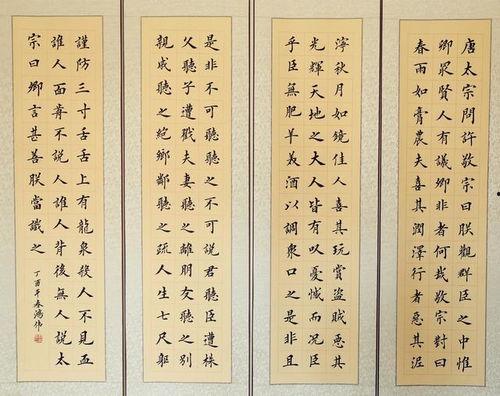 唐太宗問許敬宗曰朕觀群臣之中惟
卿最賢人有議卿非者何哉敬宗對曰
春雨如膏農夫喜其潤澤行者惡其泥
濘秋月如鏡佳人喜其玩賞盜賊惡其
光輝天地之大人皆有以憂憾而況臣
乎臣無肥羊美酒以調眾口之是非且
是非不可聽聽之不可說君聽臣遭誅
父聽子遭戮夫妻聽之離朋友聽之別
親戚聽之絕鄉鄰聽之疏人生七尺軀
謹防三寸舌舌上有龍泉殺人不見血
誰人面前不說人誰人背後無人說太
宗曰卿言甚善朕當識之
丁酉年春鴻偉